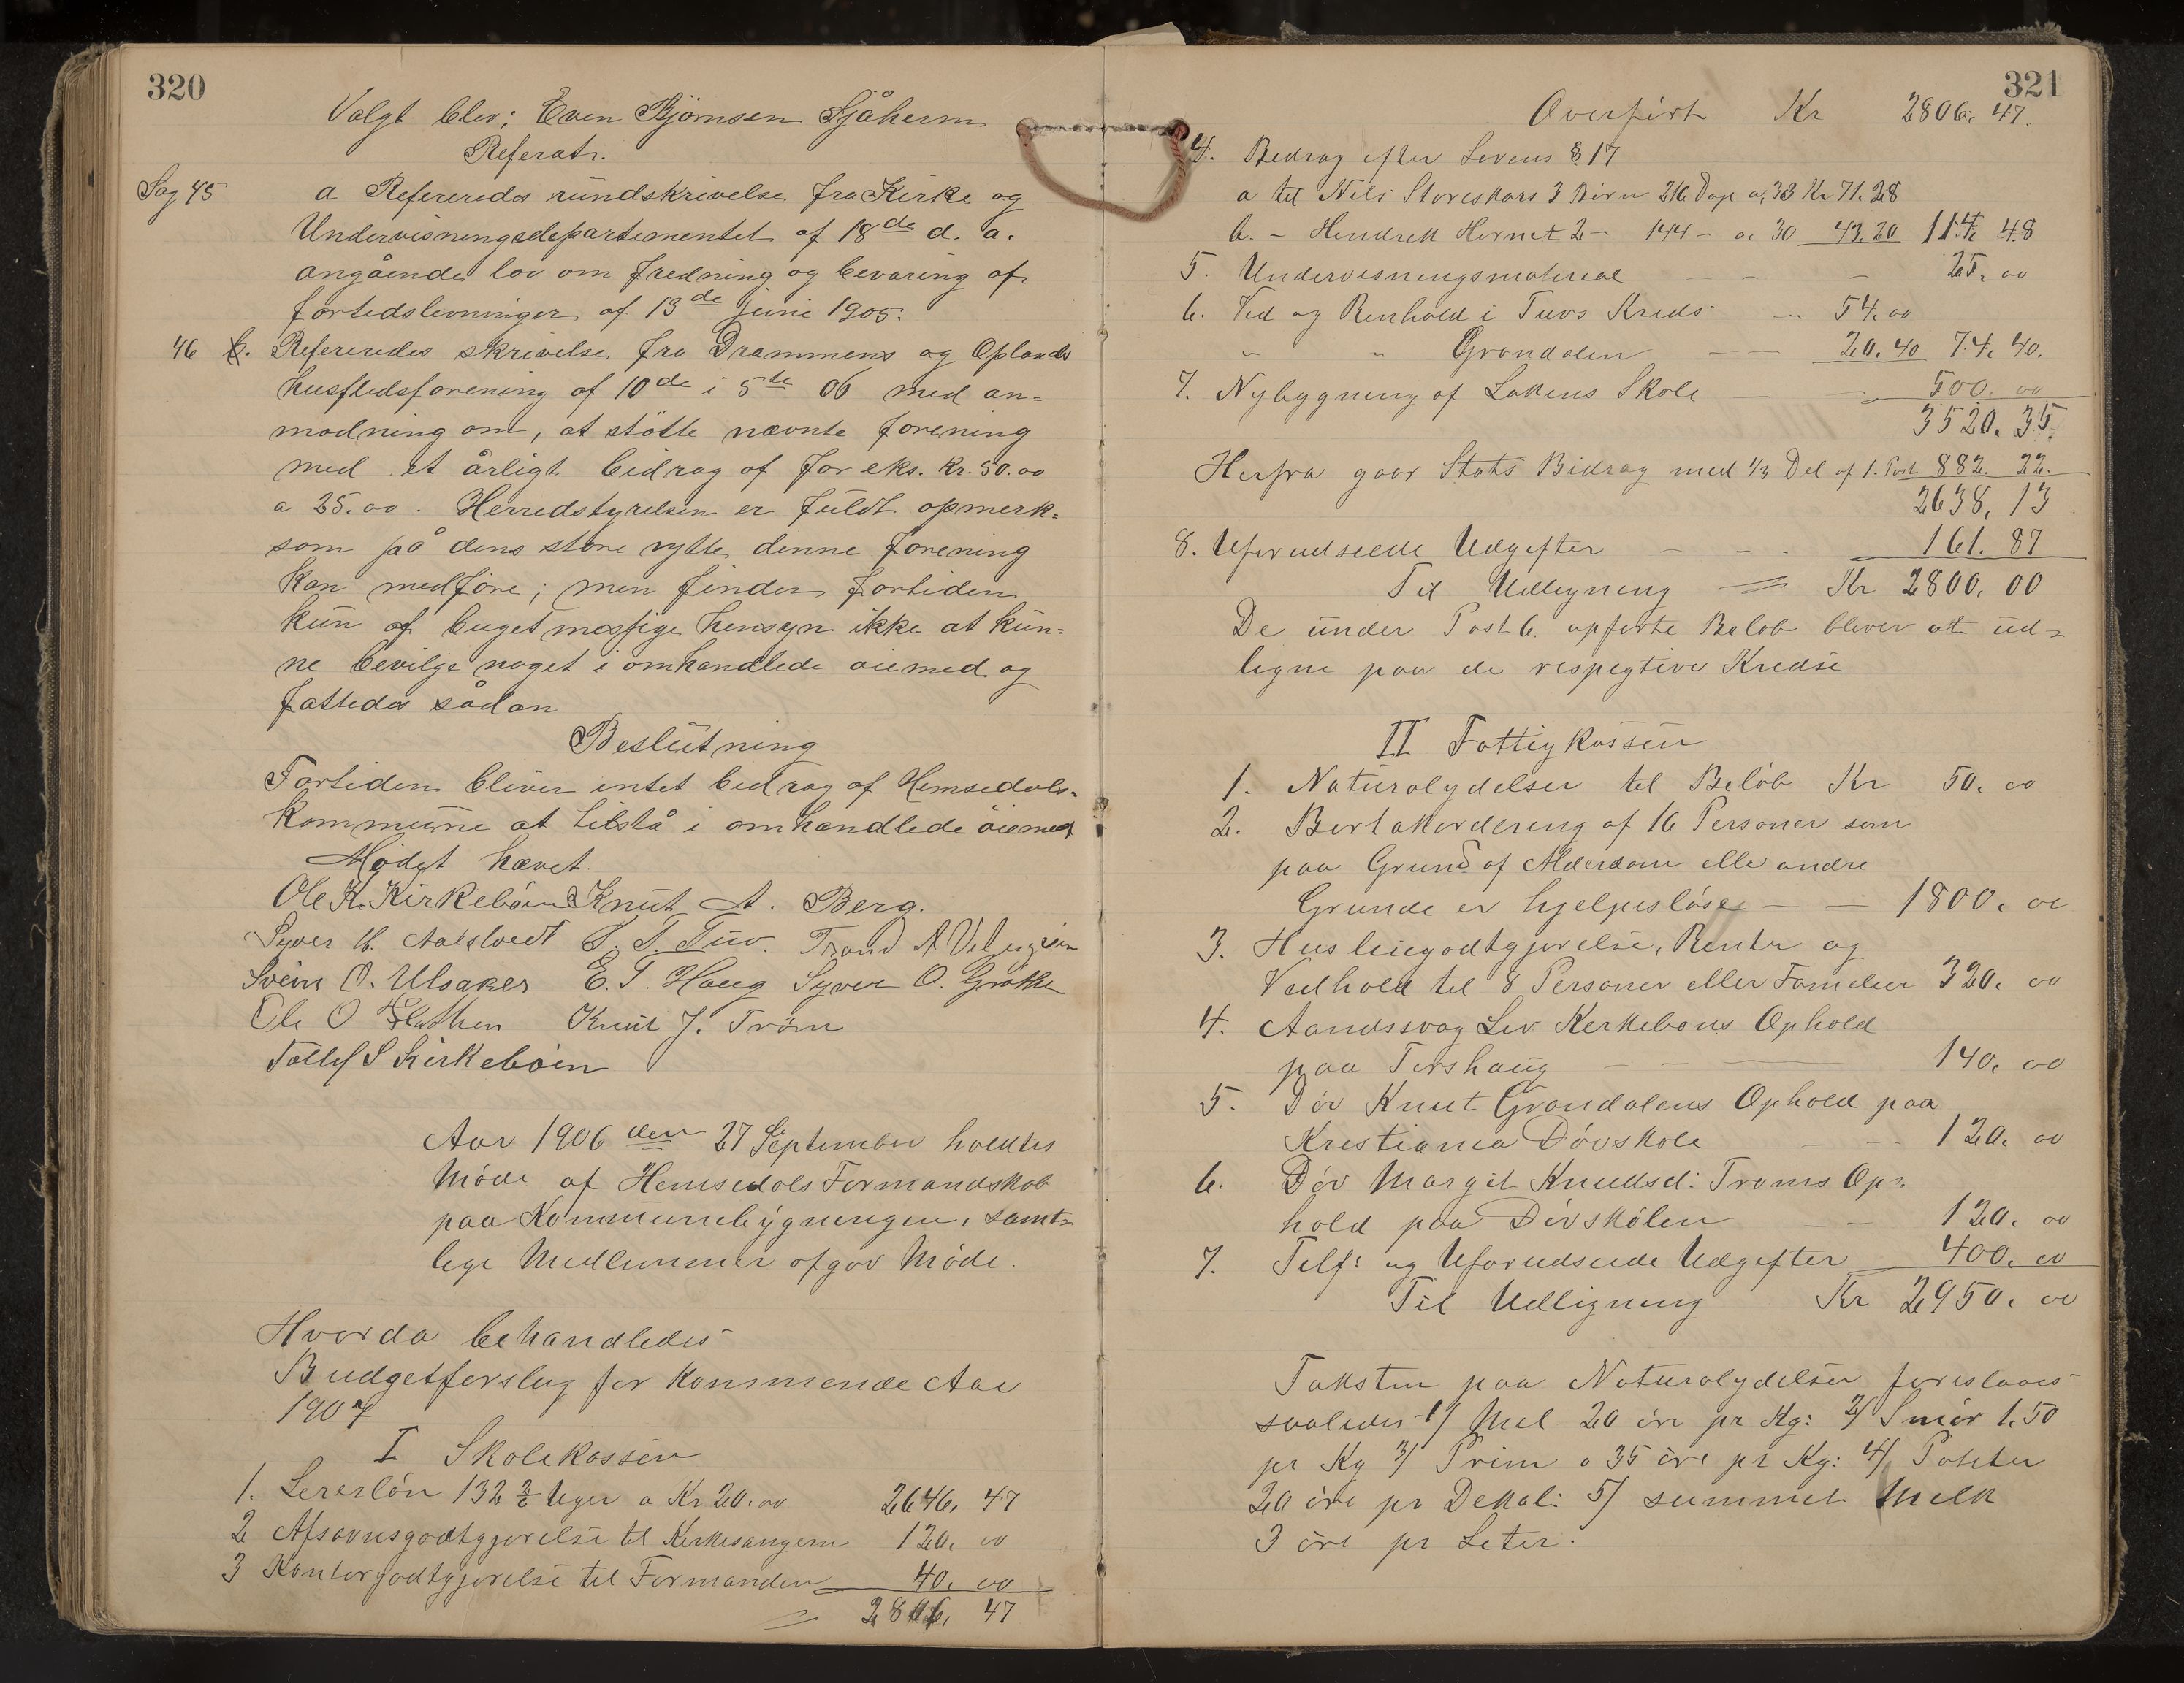 320
Valgt blev; Even Bjørnsen Sjåheim
Referat.
Sag 45 a Refereredes rundskrivelse fra Kirke og
Undervisningsdepartementet af 18de d. a.
angående lov om fredning og bevaring af
fortidslevninger af 13de juni 1905.
46 b. Refereredes skrivelse fra Drammens og Oplands
husflidsforening af 10de i 5te 06 med an=
modning om, at støtte nævnte forening
med et årligt bidrag af for eks. Kr. 50.00
a 25.00. Herredstyrelsen er fuldt opmerk=
som på dens store nytte denne forening
kan medføre; men finder fortiden
kun af bugetmæssige hensyn ikke at kun=
ne bevilge noget i omhandlede øiemed og
fattedes sådan
Beslutning
Fortiden bliver intet bidrag af Hemsedals-
kommune at tilstå i omhandlede øiemed
Mødet hævet.
Ole K. Kirkebøen Knut A. Berg.
Syver H. Aalstvedt T. Tuv. Trond A
Svein O. Ulsaker E. T. Haug Syver O. Grøthe
Ole O Flathen Knut J. Trøm
Tollef S Kirkebøen
Aar 1906 den 27 September holdtes
Møde af Hemsedals Formandskab
paa Kommunebygningen, samt=
lige Medlemmer afgav Møde.
Hvorda behandledes
Budgetforslag for kommende Aar
1907
I Skolekassen
1. Lererløn 132 2/6 Uger a Kr 20.00 2646, 47
2 Afsavnsgodtgjørelse til Kirkesangeren 120, 00
3 Kontorgodtgjørelse til Formanden 40, 00
2806, 47
321
Overført Kr 2806, 47.
4. Bedrag efter Lovens § 17
a til Nils Storeskars 3 Børn 216 Dage a, 33 Kr 71.28
b. - Hendrik Hornet 2 - 144 - a 30 43.20 114, 48
5. Undervisningsmaterial - - - 25, 00
6. Ved og Renhold i Tuvs Kreds - 54.00
" " Grøndalen - 20.40 74, 40.
7. Nybygning af Løkens Skole - 500. 00
3520. 35.
Herfra gaar Stats Bidrag med 1/3 Del af 1. Post 882. 22.
2638, 13
8. Uforudseede Udgifter - - - 161. 87
Til Udligning = Kr 2800, 00
De under Post 6. opførte Beløb bliver at ud=
ligne paa de respegtive Kredse
II Fattigkassen
1. Naturalydelser til Beløb Kr 50. 00
2. Bortakordering af 16 Personer som
paa Grund af Alderdom elle andre
Grunde er hjelpesløse - - 1800. 00
3. Husleiegodtgjørelse, Renter og
Vedhold til 8 Personer eller Familier 320. 00
4. Aandssvag Liv Kirkebøns Ophold
paa Torshaug - 140. 00
5. Døv Knut Grøndalens Ophold paa
Kristiania Døvskole - - 120. 00
6. Døv Margit Knudsd: Trøms Op=
hold paa Døvskolen - - 120. 00
7. Telf: og Uforudseede Udgifter 400. 00
Til Udligning Kr 2950. 00
Taksten paa Naturalydelser foreslaaes
saaledes 1/ Mel 20 øre pr Kg: 2/ Smør 1.50
pr Kg 3/ Prim a 35 øre pr Kg: 4/ Poteter
20 øre pr Dekal: 5/ summet Melk
3 øre pr Liter.